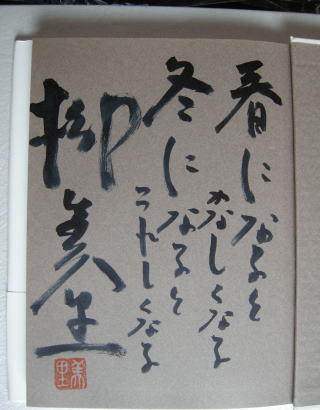 春になると
かなしくなる
冬になると
うれしくなる
柳美里
美里